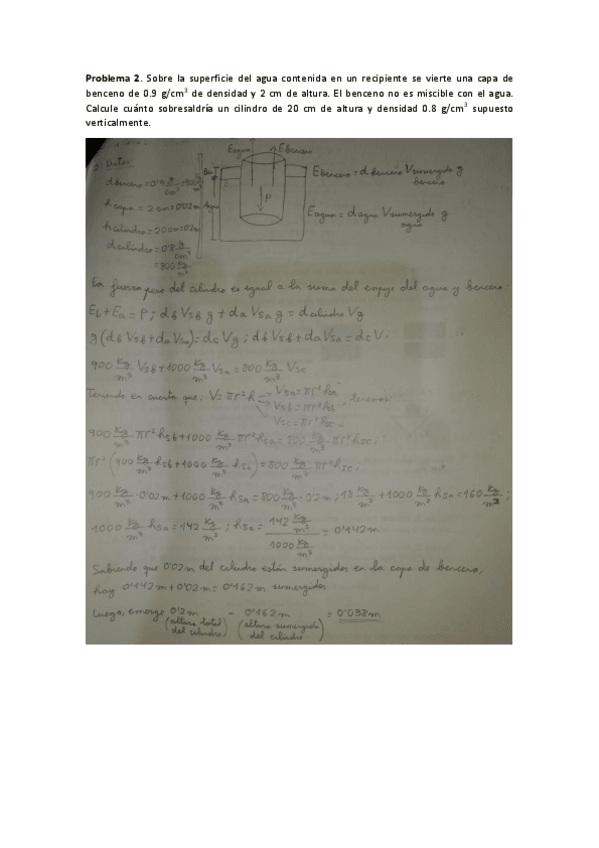 Problema 2. Sobre la superficie del agua contenida en un recipiente se vierte una capa de
benceno de 0.9 g/cm³ de densidad y 2 cm de altura. El benceno no es miscible con el agua.
Calcule cuánto sobresaldría un cilindro de 20 cm de altura y densidad 0.8 g/cm³ supuesto
verticalmente.
Datos
Eagua Ebenceno
d benceno = 0'9 g/cm³ = 900 kg/m³
Ebenceno = d benceno Vsumergido benceno g
h capa = 2cm = 0'02m
Agua
P
h cilindro = 20cm = 0'2m
Eagua = d agua Vsumergido agua g
d cilindro = 0'8 g/cm³
= 800 kg/m³
La fuerza peso del cilindro es igual a la suma del empuje del agua y benceno
Eb + Ea = P ; db Vsb g + da Vsa g = dcilindro V g
g (db Vsb + da Vsa) = dc V g ; db Vsb + da Vsa = dc V
900 kg/m³ Vsb + 1000 kg/m³ Vsa = 800 kg/m³ Vsc
Teniendo en cuenta que: V = πr²h
Vsa = πr²hsa
Vsb = πr²hsb
Vsc = πr²hsc
tenemos:
900 kg/m³ πr²hsb + 1000 kg/m³ πr²hsa = 800 kg/m³ πr²hsc ;
πr² (900 kg/m³ hsb + 1000 kg/m³ hsa) = 800 kg/m³ πr²hsc
900 kg/m³ · 0'02m + 1000 kg/m³ hsa = 800 kg/m³ · 0'2m ; 18 kg/m² + 1000 kg/m³ hsa = 160 kg/m² ;
1000 kg/m³ hsa = 142 kg/m² ; hsa = 142 kg/m² / 1000 kg/m³ = 0'142m
Sabiendo que 0'02m del cilindro están sumergidos en la capa de benceno,
hay 0'142m + 0'02m = 0'162m sumergidos
Luego, emerge 0'2m - 0'162m = 0'038m
(altura total del cilindro) (altura sumergida del cilindro)